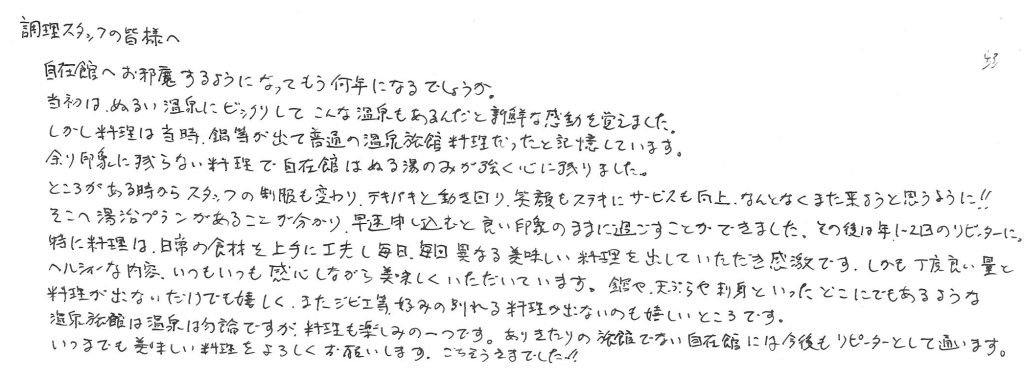 調理スタッフの皆様へ
自在館へお邪魔するようになってもう何年になるでしょうか。
当初は、ぬるい温泉にビックリして こんな温泉もあるんだと新鮮な感動を覚えました。
しかし料理は当時、鍋等が出て普通の温泉旅館料理だったと記憶しています。
余り印象に残らない料理で自在館はぬる湯のみが強く心に残りました。
ところがある時からスタッフの制服も変わり、テキパキと動き回り、笑顔もステキにサービスも向上、なんとなくまた来ようと思うように!!
そこへ湯治プランがあることが分かり、早速申し込むと良い印象のままに過ごすことができました、その後は年1~2回のリピーターに。
特に料理は、日常の食材を上手に工夫し毎日、毎回異なる美味しい料理を出していただき感激です、しかも丁度良い量と
ヘルシィーな内容、いつもいつも感心しながら美味しくいただいています。鍋や、天ぷらや刺身といったどこにでもあるような
料理が出ないだけでも嬉しく、またジビエ等、好みの別れる料理が出ないのも嬉しいところです。
温泉旅館は温泉は勿論ですが、料理も楽しみの一つです。ありきたりの旅館でない自在館には今後もリピーターとして通います。
いつまでも美味しい料理をよろしくお願いします、ごちそうさまでした!!